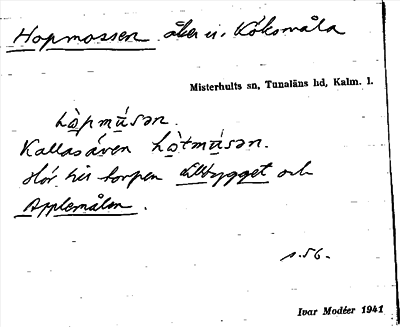 Hopmossen åker ei. Köksmåla
Misterhults sn, Tunaläns hd, Kalm. l.
hòpmúsən.
Kallas även hòtmúsən.
Hör till torpen Lillbygget och
Applemålen.
s. 56.
Ivar Modéer 1941